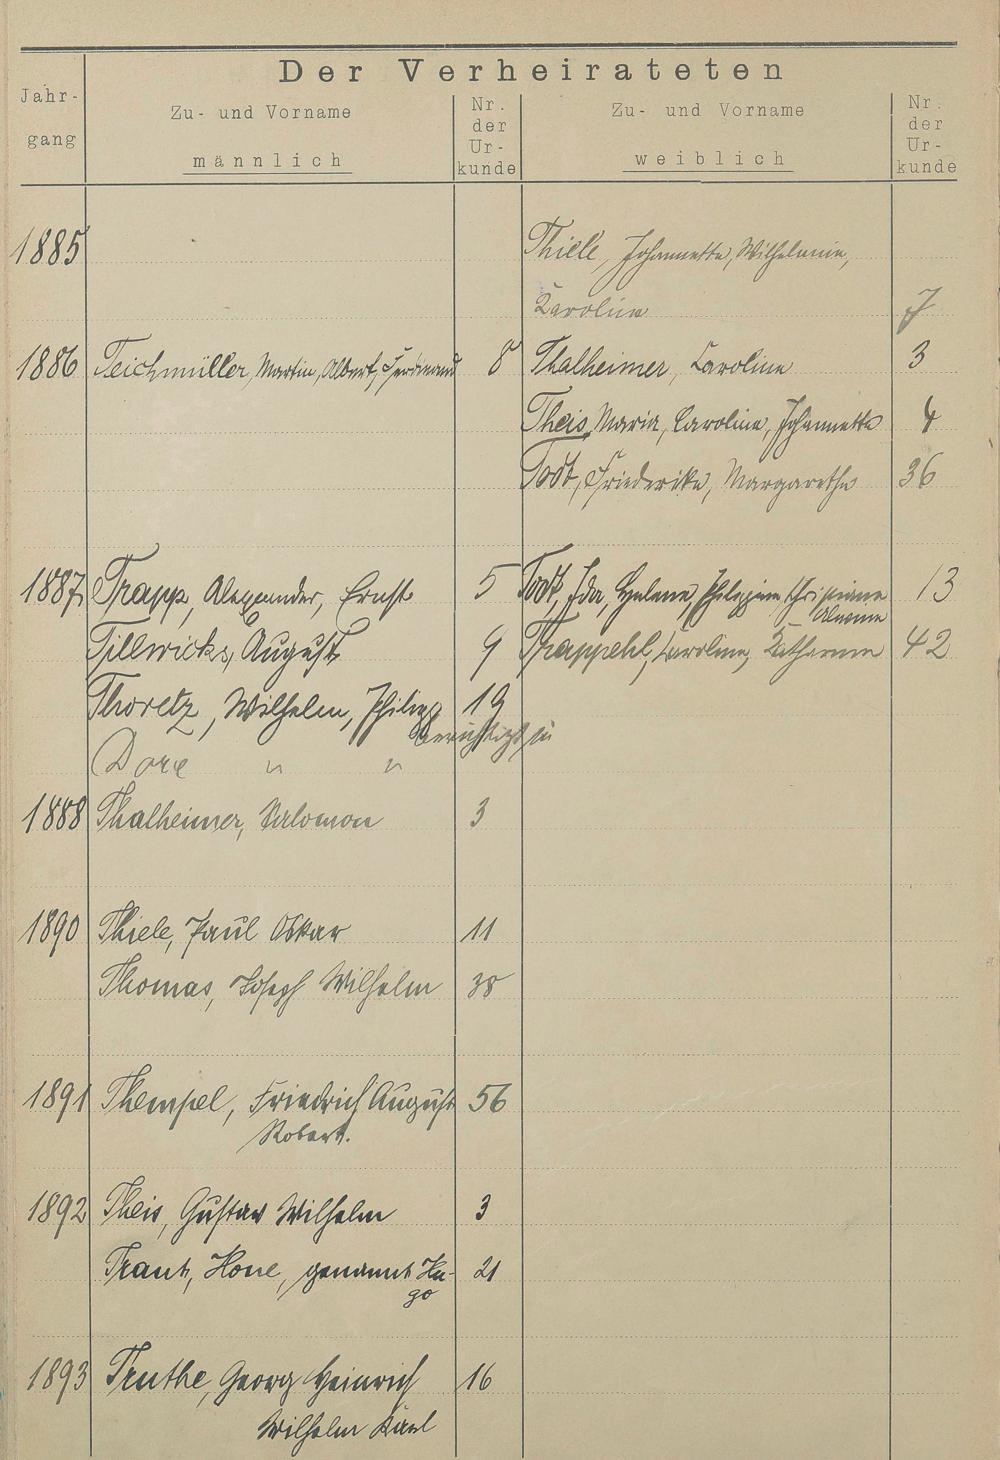 Der Verheirateten
Jahr-
gang
Zu- und Vorname
männlich
Nr.
der
Ur-
kunde
Zu- und Vorname
weiblich
Nr.
der
Ur-
kunde
1885 Thiele, Johannette, Wilhelmine,
Karoline 7
1886 Teichmüller, Martin, Albert, Ferdinand 8 Thalheimer, Caroline 3
Theis, Maria, Caroline, Johannette 4
Todt, Friederike, Margarethe 36
1887 Trapp, Alexander, Ernst 5 Todt, Ida, Helene, Philippine, Christine 13
Tillwicks, August 9 Trappehl, Caroline, Katharine 42
Thoretz, Wilhelm, Philipp 19
berichtigt in
Dore " "
1888 Thalheimer, Salomon 3
1890 Thiele, Paul Oskar 11
Thomas, Joseph Wilhelm 38
1891 Thempel, Friedrich August 56
Robert.
1892 Theis, Gustav Wilhelm 3
Traut, Hone, genannt Hu- 21
go
1893 Truthe, Georg Heinrich 16
Wilhelm Karl